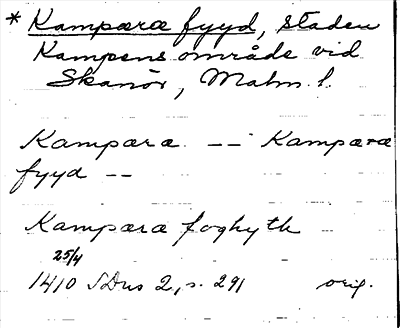 * Kampæræ fyyd, staden
Kampens område vid
Skanör, Malm. l.
Kampæra -- Kampæra
fyyd --
Kampæra foghyth
25/4
1410 SDns 2, s. 291 orig.